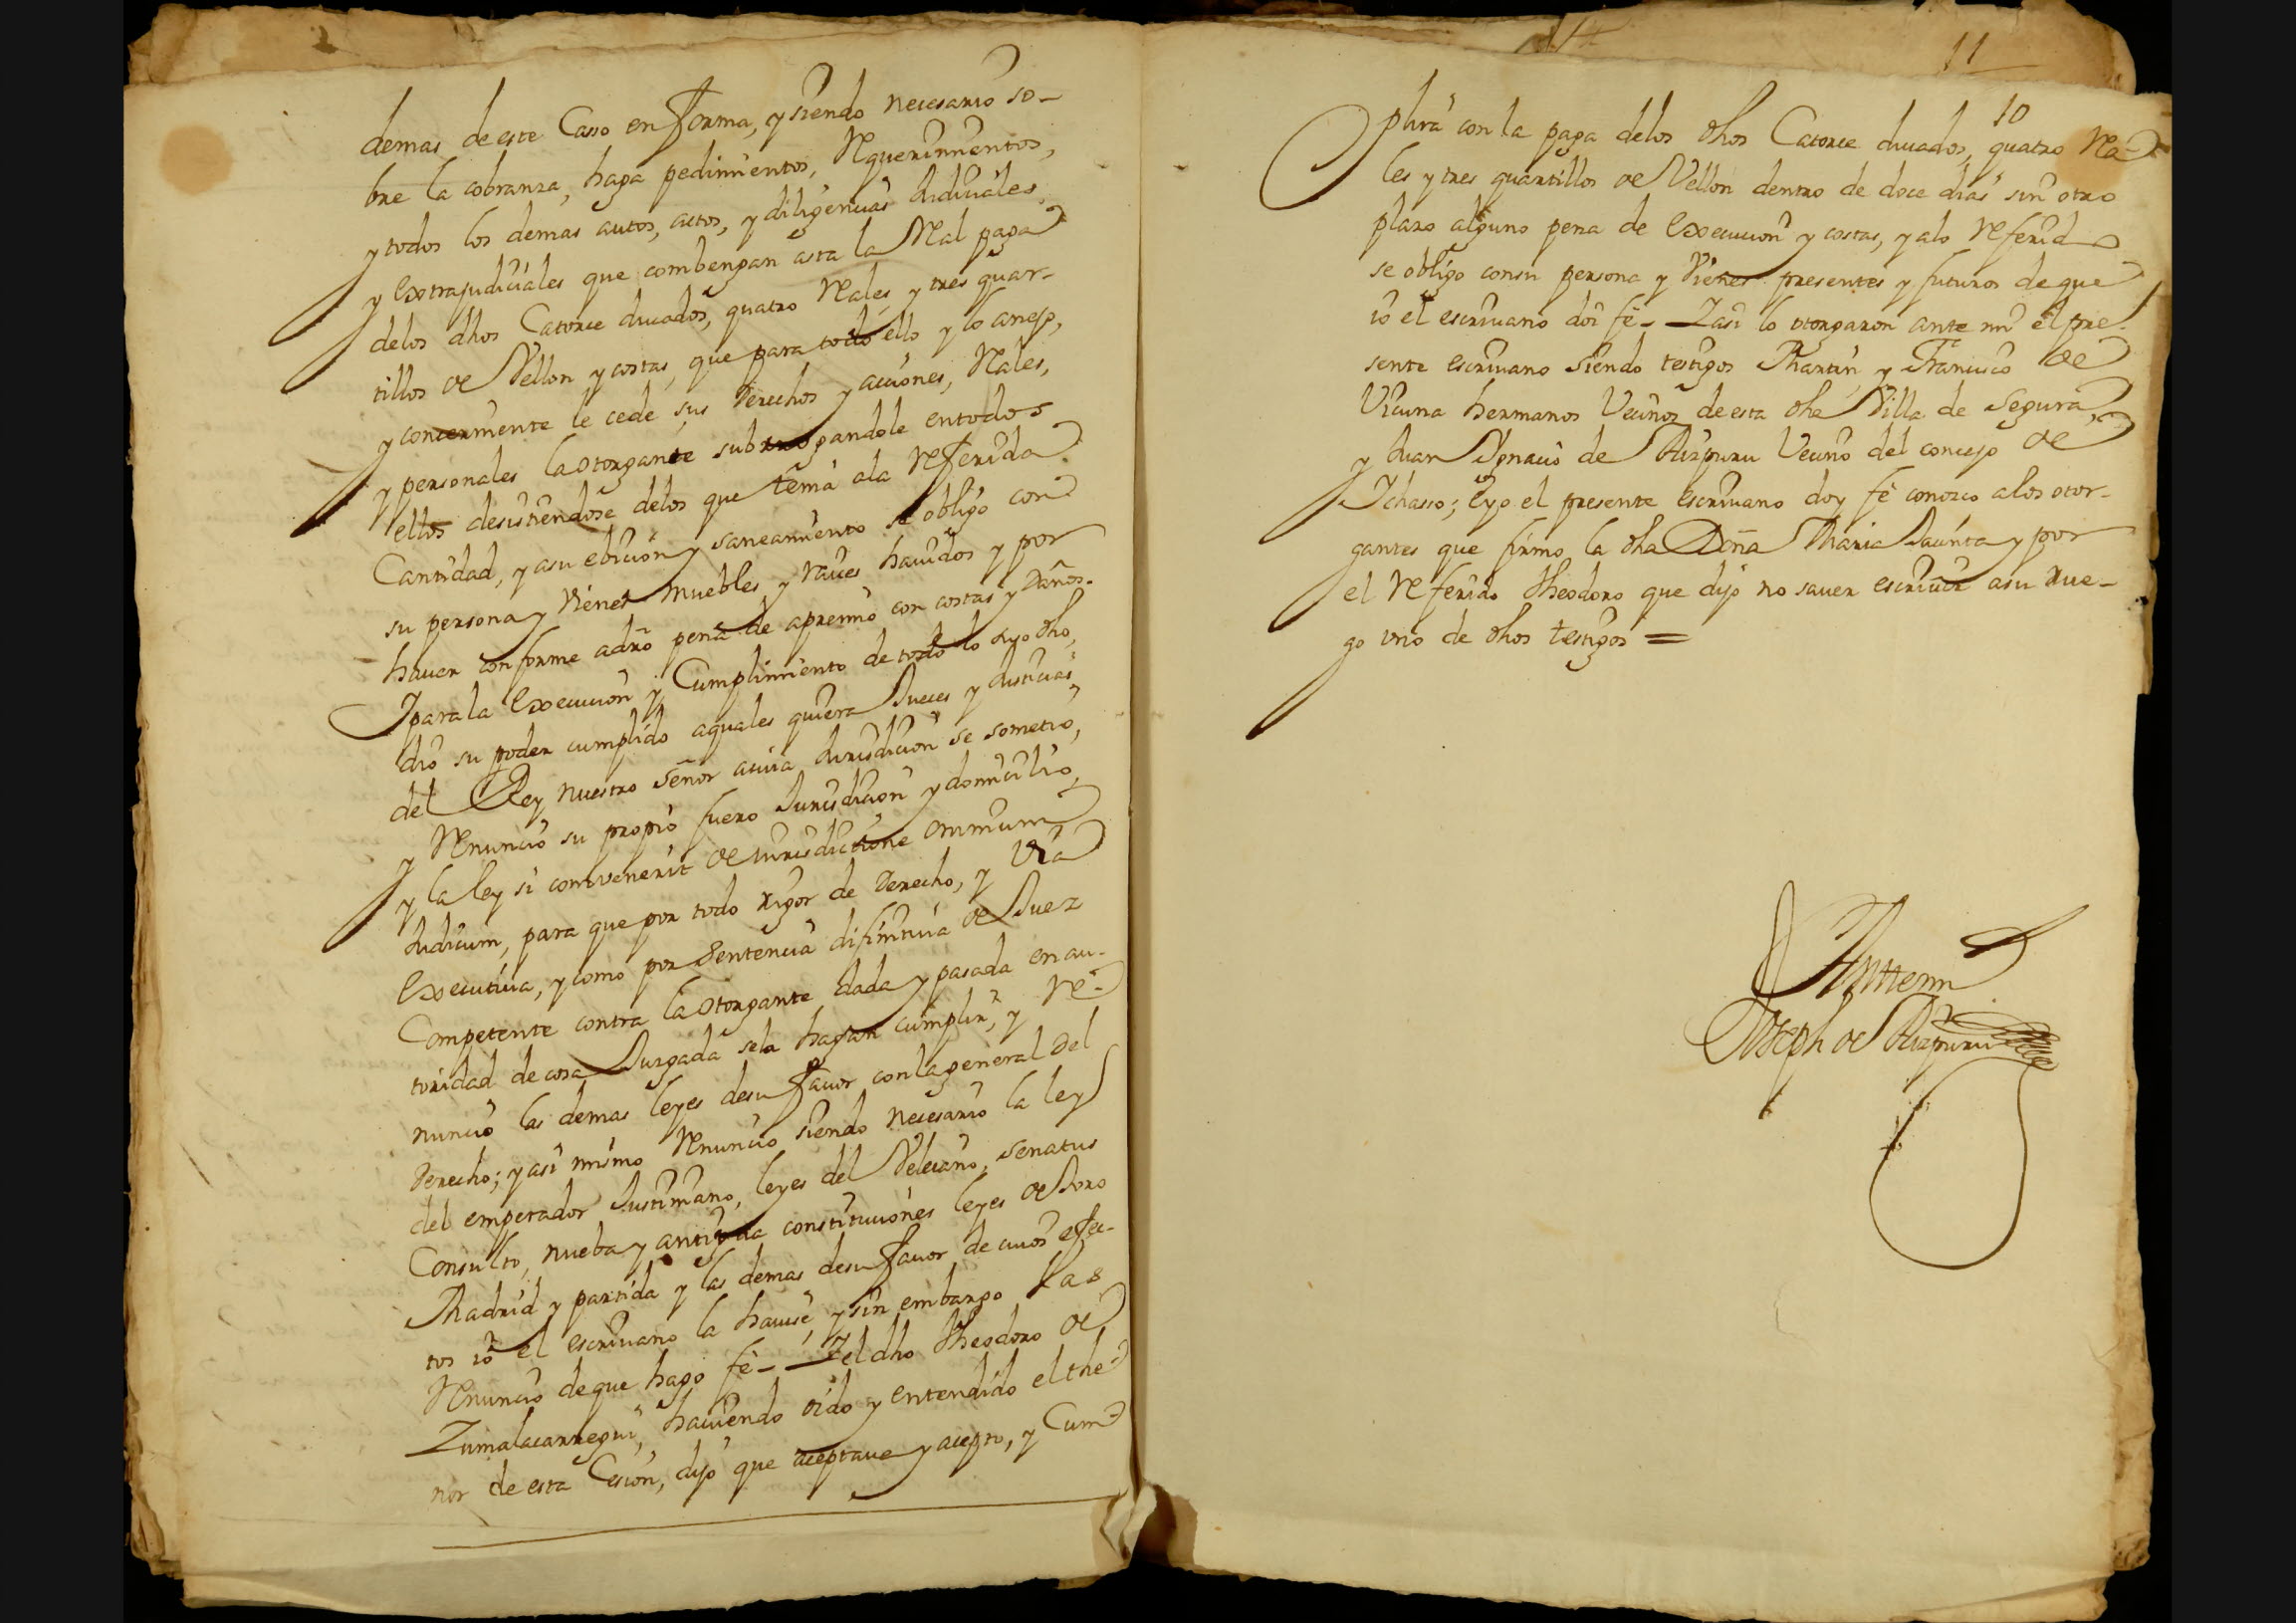 demas de este Casso en forma, y siendo necesario so-
bre la cobranza, haga pedimientos, Requerimientos,
y todos los demas autos, actos, y diligencias Judiciales,
y Extrajudiciales que combengan asta la Real paga
delos dhos Catorce ducados, quatro Reales, y tres quar-
tillos de Vellon y costas, que para todo ello y lo anejo,
y concerniente le cede sus Derechos y acciones, Reales,
y personales la otorgante subrrogandole en todos
ellos desistiendose delos que tenia ala Referida
Cantidad, y asu ebicion y saneamiento se obligo con
su persona y vienes muebles y raices havidos y por
haver conforme adro pena de apremio con costas y Daños.
Y para la Execucion y Cumplimiento de todo lo suso dho,
dio su poder cumplido aquales quiera Jueces y Justicias
del Rey nuestro Señor acuia Jurisdicion se sometio,
y Renuncio su propio fuero Jurisdicion y domicilio,
y la ley si convenerit de iurisdictione omnium
Judicum, para que por todo rigor de Derecho, y via
Executiva, y como por Sentencia difinitiva de Juez
Competente contra la otorgante dada y pasada en au-
toridad de cosa Juzgada sela hagan cumplir, y Re-
nuncio las demas leyes desu favor con la general Del
Derecho; y asi mismo Renuncio siendo necesario la ley
del emperador Justiniano, leyes del Veleiano, Senatus
Consulto, nueba y antigua constituciones leyes de Toro
Madrid y partida y las demas desu favor de cuios efec-
tos io el escrivano la havise, y sin embargo las
Renuncio de que hago fe- Y el dho Theodoro de
Zumalacarregui, haviendo oido y entendido el the-
nor de esta Cesion, dijo que aceptava y acepto, y Cum
11
10
plira con la paga delos dhos Catorce ducados, quatro Rea-
les y tres quartillos de Vellon dentro de doce dias sin otro
plazo alguno pena de Execucion y costas, y alo Referido
se obligo consu persona y vienes presentes y futuros de que
io el escrivano doi fe- Y asi lo otorgaron ante mi el pre-
sente escrivano siendo testigos Martin, y Francisco de
Vicuna hermanos Vecinos de esta dha Villa de Segura,
y Juan Ygnacio de Aizpuru Vecino del concejo de
Ichasso; Eyo el presente escrivano doy fe conozco alos otor-
gantes que firmo la dha Doña Maria Jacinta y por
el Referido Theodoro que dijo no saver escrivir asu Rue-
go uno de dhos testigos =
Antte mi
Joseph de Aizpuru